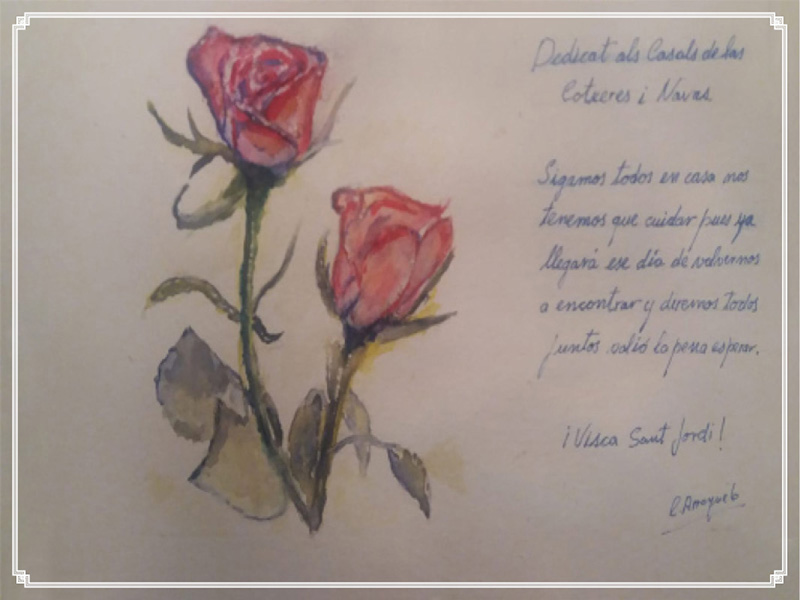 Dedicat als Casals de las
Cotxeres i Navas
Sigamos todos en casa nos
tenemos que cuidar pues ya
llegará ese día de volvernos
a encontrar y diremos todos
juntos valió la pena esperar.
¡Visca Sant Jordi!